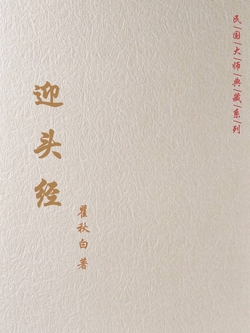 民/国/大/师/典/藏/系/列
迎头经
瞿秋白 著